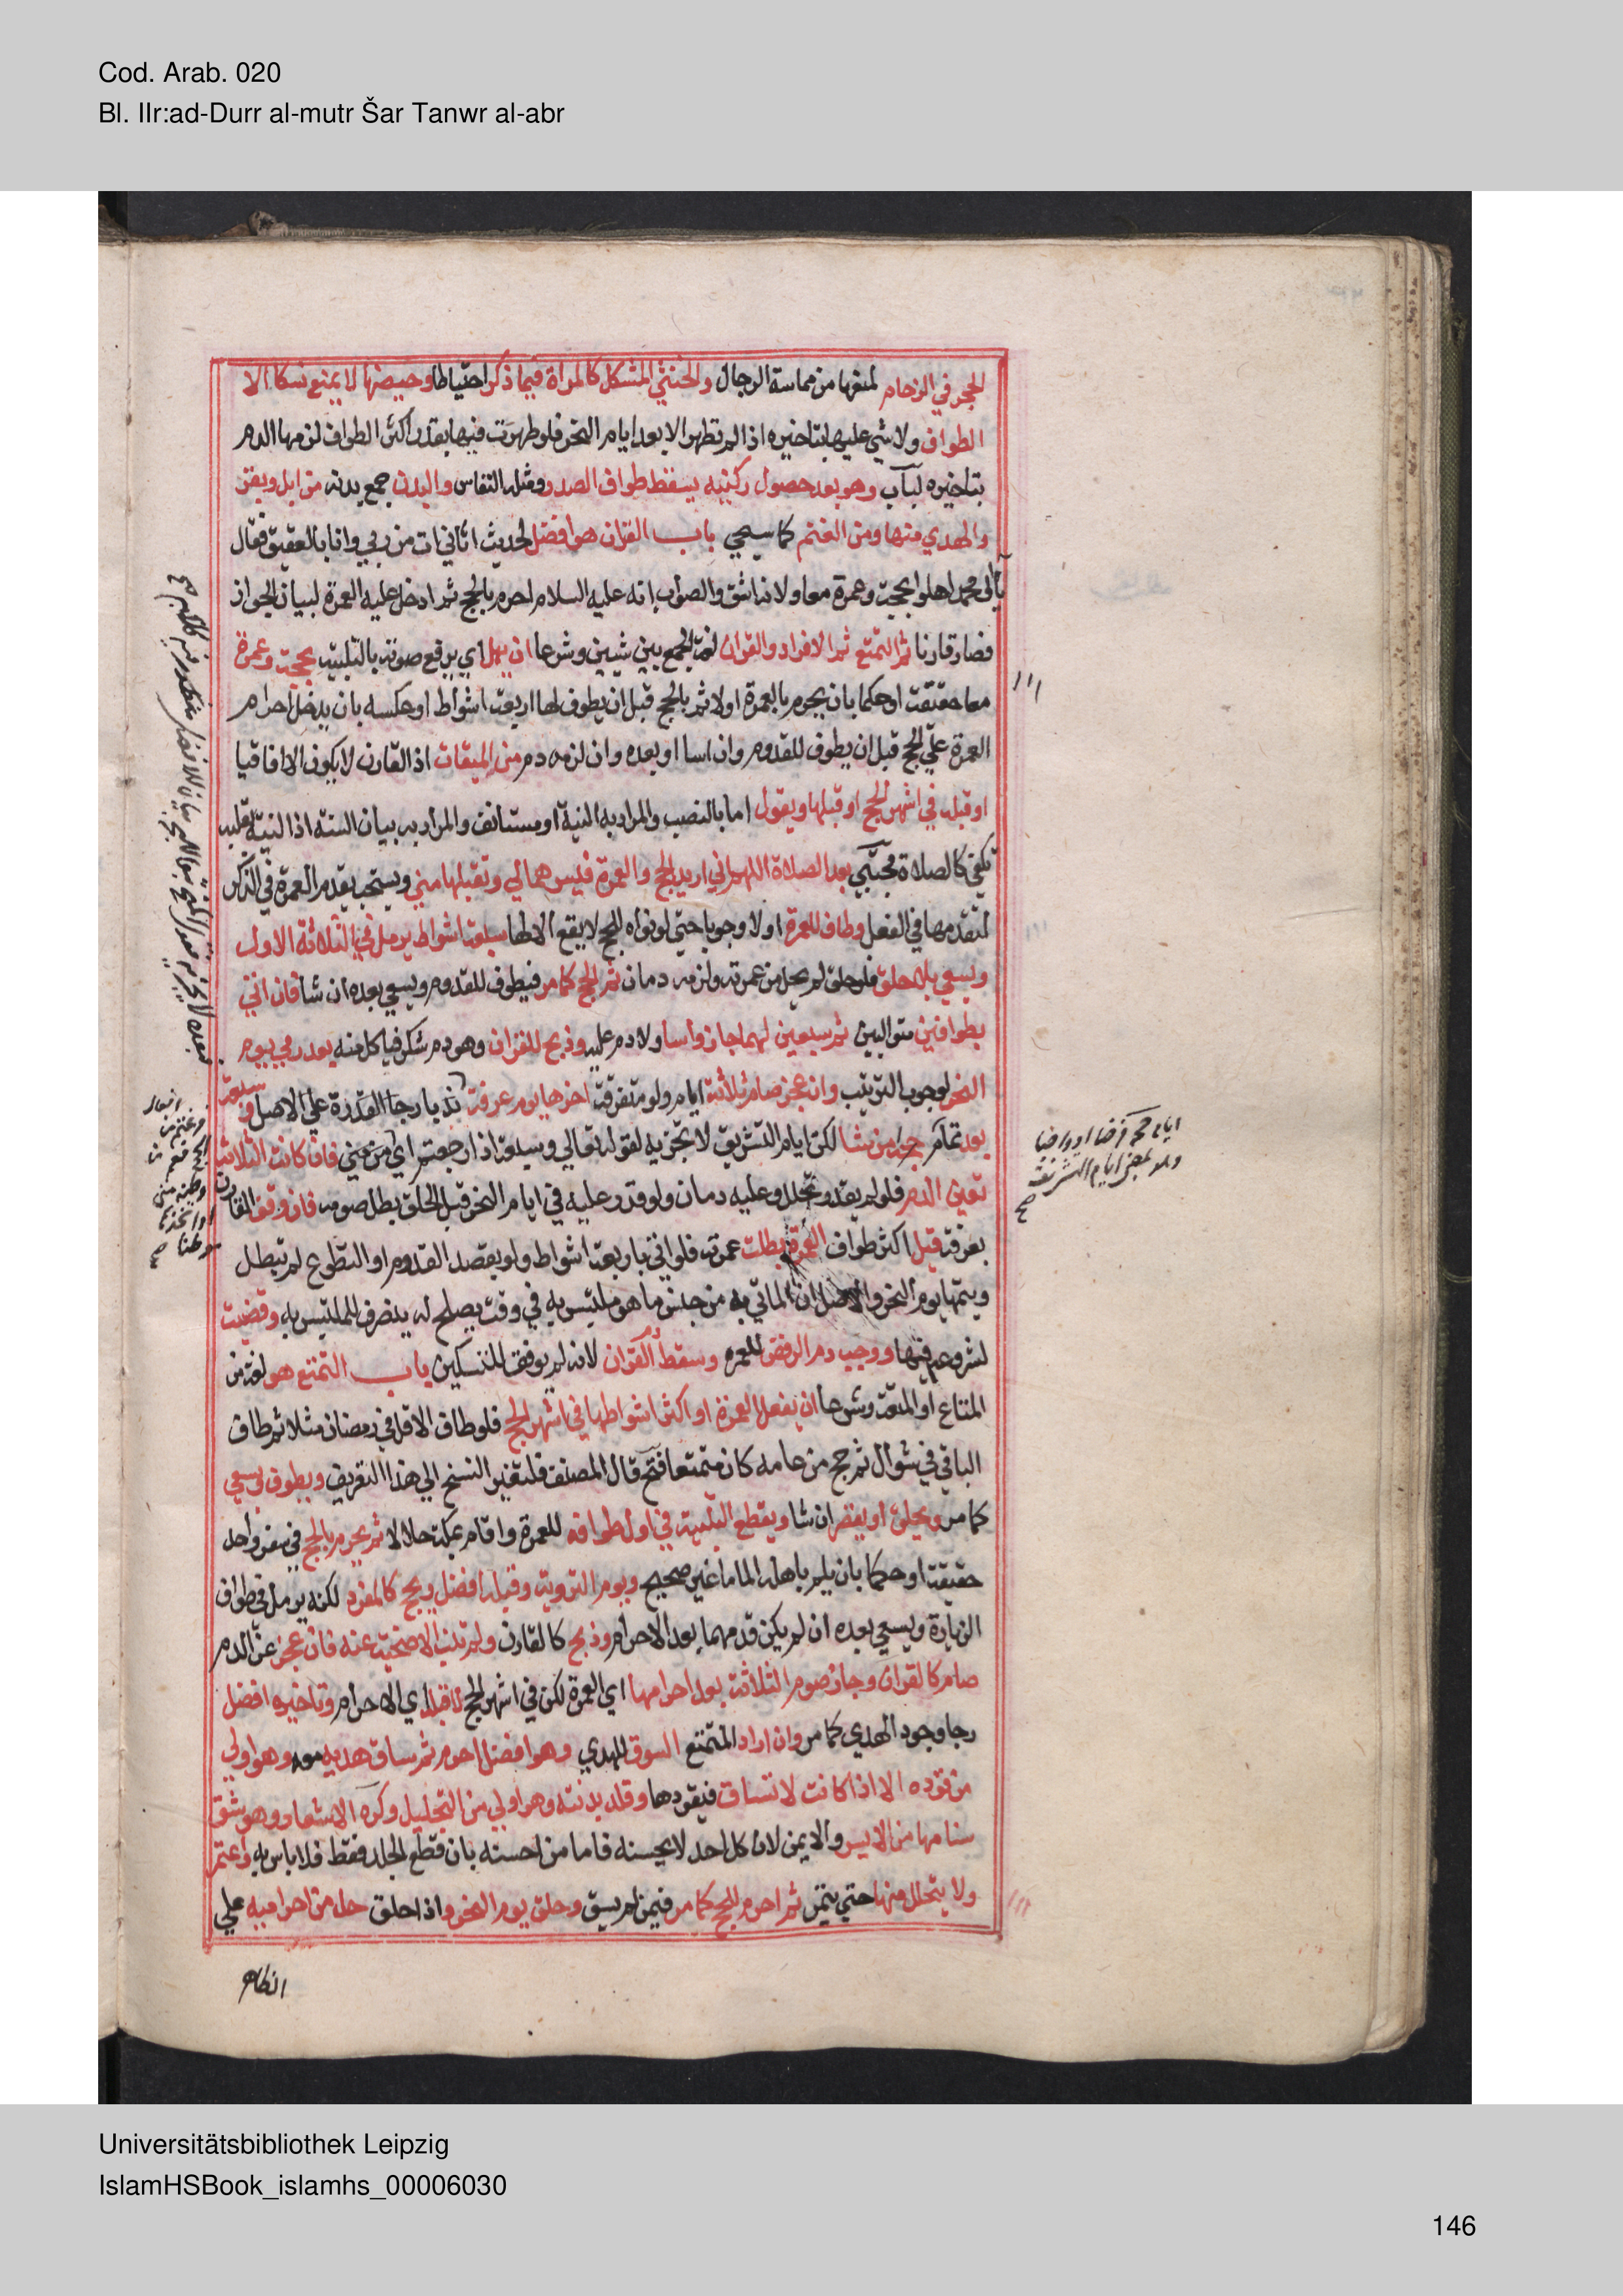 Cod. Arab. 020
Bl. IIr:ad-Durr al-mutr Šar Tanwr al-abr
الحجر في الزحام لمنعها من مماسة الرجال والخنثي المشكل كالمراة فيما ذكر احتياطا وحيضها لا يمنع نسكا الا
الطواف ولا شي عليها بتاخيره اذا لم تطهر الا بعد ايام النحر فلو طهرت فيها بقدر اكثر الطواف لزمها الدم
بتاخيره لباب وهو بعد حصول ركنيه يسقط طواف الصدر ومثله النفاس والبدن جمع بدنه من ابل وبقر
والهدي منها ومن الغنم كما سيجي باب القران هو افضل لحديث اتاني ات من ربي وانا بالعقيق فقال
يا آل محمد اهلوا بحجة وعمرة معا ولانه اشق والصواب انه عليه السلام احرم بالحج ثم ادخل عليه العمرة لبيان الجواز
فصار قارنا ثم التمتع ثم الافراد والقران لغة الجمع بين شيين وشرعا ان يهل اي يرفع صوته بالتلبية بحجة وعمرة
معا حقيقة او حكما بان يحرم بالعمرة اولا ثم بالحج قبل ان يطوف لها اربعة اشواط او عكسه بان يدخل احرام
العمرة علي الحج قبل ان يطوف للقدوم وان اسا او بعده وان لزمه دم من الميقات اذ القارن لا يكون الا افاقيا
او قبله في اشهر الحج او قبلها ويقول اما بالنصب والمراد به النية او مستانف والمراد به بيان السنة اذ النية بقلبه
تكفي كالصلاة مجتبي بعد الصلاة اللهم اني اريد الحج والعمرة فيسرهما لي وتقبلهما مني ويستحب تقدم العمرة في الذكر
لتقدمها في الفعل وطاف للعمرة اولا وجوبا حتي لو نواه للحج لا يقع الا لها سبعة اشواط يرمل في الثلاثة الاول
ويسعي بلا حلق فلو حلق لم يحل من عمرته ولزمه دمان ثم يحج كما مر فيطوف للقدوم ويسعي بعده ان شا فان اتي
بطوافين متواليين ثم سعيين لهما جاز واسا ولا دم عليه وذبح للقران وهو دم شكر فياكل منه بعد رمي يوم
النحر لوجوب الترتيب وان عجز صام ثلاثة ايام ولو متفرقة اخرها يوم عرفة ندبا رجا القدرة علي الاصل وسبعة
بعد تمام حجه اين شا لكن ايام التشريق لا تجزيه لقوله تعالي وسبعة اذا رجعتم اي من مني فان كانت الثلاثة
تعين الدم فلو لم يقدر تحلل وعليه دمان ولو قدر عليه في ايام النحر قبل الحلق بطل صومه فان وقف القارن
بعرفة قبل اكثر طواف العمرة بطلت عمرته فلو اتي باربعة اشواط ولو بقصد القدوم او التطوع لم تبطل
ويتمها يوم النحر والاصل ان الماتي به من جنس ما هو متلبس به في وقت يصلح له ينصرف للمتلبس به وقضيت
لشروعه فيها ووجب دم الرفض للعمرة وسقط دم القران لانه لم يوفق للنسكين باب التمتع هو لغة من
المتاع او المتعة وشرعا ان يفعل العمرة او اكثر اشواطها في اشهر الحج فلو طاف الاقل في رمضان مثلا ثم طاف
الباقي في شوال ثم حج من عامه كان متمتعا فتح قال المصنف فلتغير النسخ الي هذا التعريف ويطوف ويسعي
كما مر ويحلق او يقصر ان شا ويقطع التلبية في اول طوافه للعمرة واقام بمكة حلالا ثم يحرم بالحج في سفر واحد
حقيقة او حكما بان يلم باهله الماما غير صحيح ويوم التروية وقبله افضل ويحج كالمفرد لكنه يرمل في طواف
الزيارة ويسعي بعده ان لم يكن قدمهما بعد الاحرام وذبح كالقارن ولم تنب الاضحية عنه فان عجز عن الدم
صام كالقران وجاز صوم الثلاثة بعد احرامها اي العمرة لكن في اشهر الحج لا قبله اي الاحرام وتاخيره افضل
رجا وجود الهدي كما مر وان اراد المتمتع السوق للهدي وهو افضل احرم ثم ساق هديه معه وهو اولي
من قوده الا اذا كانت لا تنساق فيقودها وقلد بدنته وهو اولي من التجليل وكره الاشعار وهو شق
سنامها من الايسر والايمن لان كل احد لا يحسنه فاما من احسنه بان قطع الجلد فقط فلا باس به واعتمر
ولا يتحلل منها حتي ينحر ثم احرم للحج كما مر فيمن لم يسق وحلق يوم النحر واذا حلق حل من احراميه علي
الظاهر
ولو بمعني ايام التشريق
Universitätsbibliothek Leipzig
IslamHSBook_islamhs_00006030
146